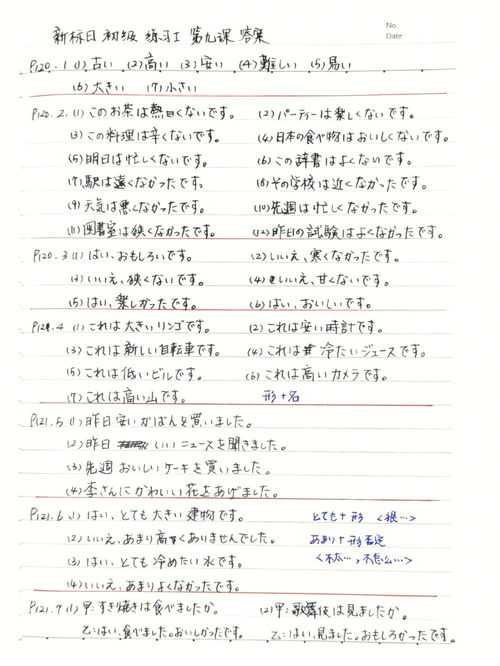 No.
Date
新标日 初级 练习I 第九课 答案
P120.1 (1) 古い (2) 高い (3) 安い (4) 難しい (5) 易い
(6) 大きい (7) 小さい
P120.2. (1) このお茶は熱くないです。 (2) パーティーは楽しくないです。
(3) この料理は辛くないです。 (4) 日本の食べ物はおいしくないです。
(5) 明日は忙しくないです。 (6) この辞書はよくないです。
(7) 駅は遠くなかったです。 (8) その学校は近くなかったです。
(9) 天気は悪くなかったです。 (10) 先週は忙しくなかったです。
(11) 図書室は狭くなかったです。 (12) 昨日の試験はよくなかったです。
P120.3 (1) はい、おもしろいです。 (2) いいえ、寒くなかったです。
(3) いいえ、狭くないです。 (4) いいえ、甘くないです。
(5) はい、楽しかったです。 (6) はい、おいしいです。
P121.4 (1) これは大きいリンゴです。 (2) これは安い時計です。
(3) これは新しい自転車です。 (4) これは冷たいジュースです。
(5) これは低いビルです。 (6) これは高いカメラです。
(7) これは高い山です。 形+名
P121.5 (1) 昨日安いかばんを買いました。
(2) 昨日 いいニュースを聞きました。
(3) 先週おいしいケーキを買いました。
(4) 李さんにかわいい花をあげました。
P121.6 (1) はい、とても大きい建物です。 とても+形 <很…>
(2) いいえ、あまり高くありませんでした。 あまり+形否定
(3) はい、とても冷めたい水です。 <不太…,不怎么…>
(4) いいえ、あまりよくなかったです。
P121.7 (1) 甲:すき焼きは食べましたか。 (2) 甲:歌舞伎は見ましたか。
乙:はい、食べました。おいしかったです。 乙:はい、見ました。おもしろかったです。